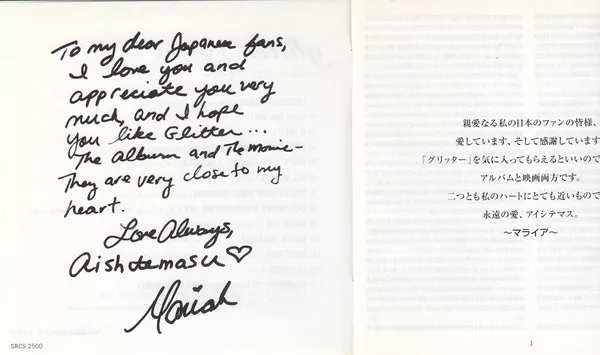 To my dear Japanese fans,
I love you and
appreciate you very
much, and I hope
you like Glitter...
The album and The Movie-
They are very close to my
heart.
Love Always,
Aishtemasu♡
Mariah
SRCS 2500
親愛なる私の日本のファンの皆様、
愛しています、そして感謝しています
「グリッター」を気に入ってもらえるといいので
アルバムと映画両方です。
二つとも私のハートにとても近いもので
永遠の愛、アイシテマス。
〜マライア〜
1